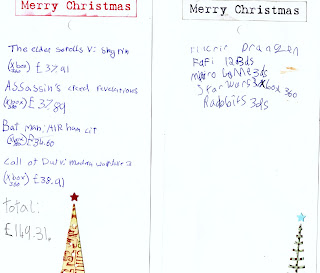 Merry Christmas
The elder scrolls V: Skyrim
(Xbox 360) £37.91
Assassin's creed revelations
(Xbox 360) £37.89
Bat man: AIR ham cit
(Xbox 360) £34.60
Call of Duty: modern warfare 3
(Xbox 360) £38.91
total:
£149.31
Merry Christmas
FaFi 12 3ds
3ds
Star Wars Xbox 360
Rabbits 3ds